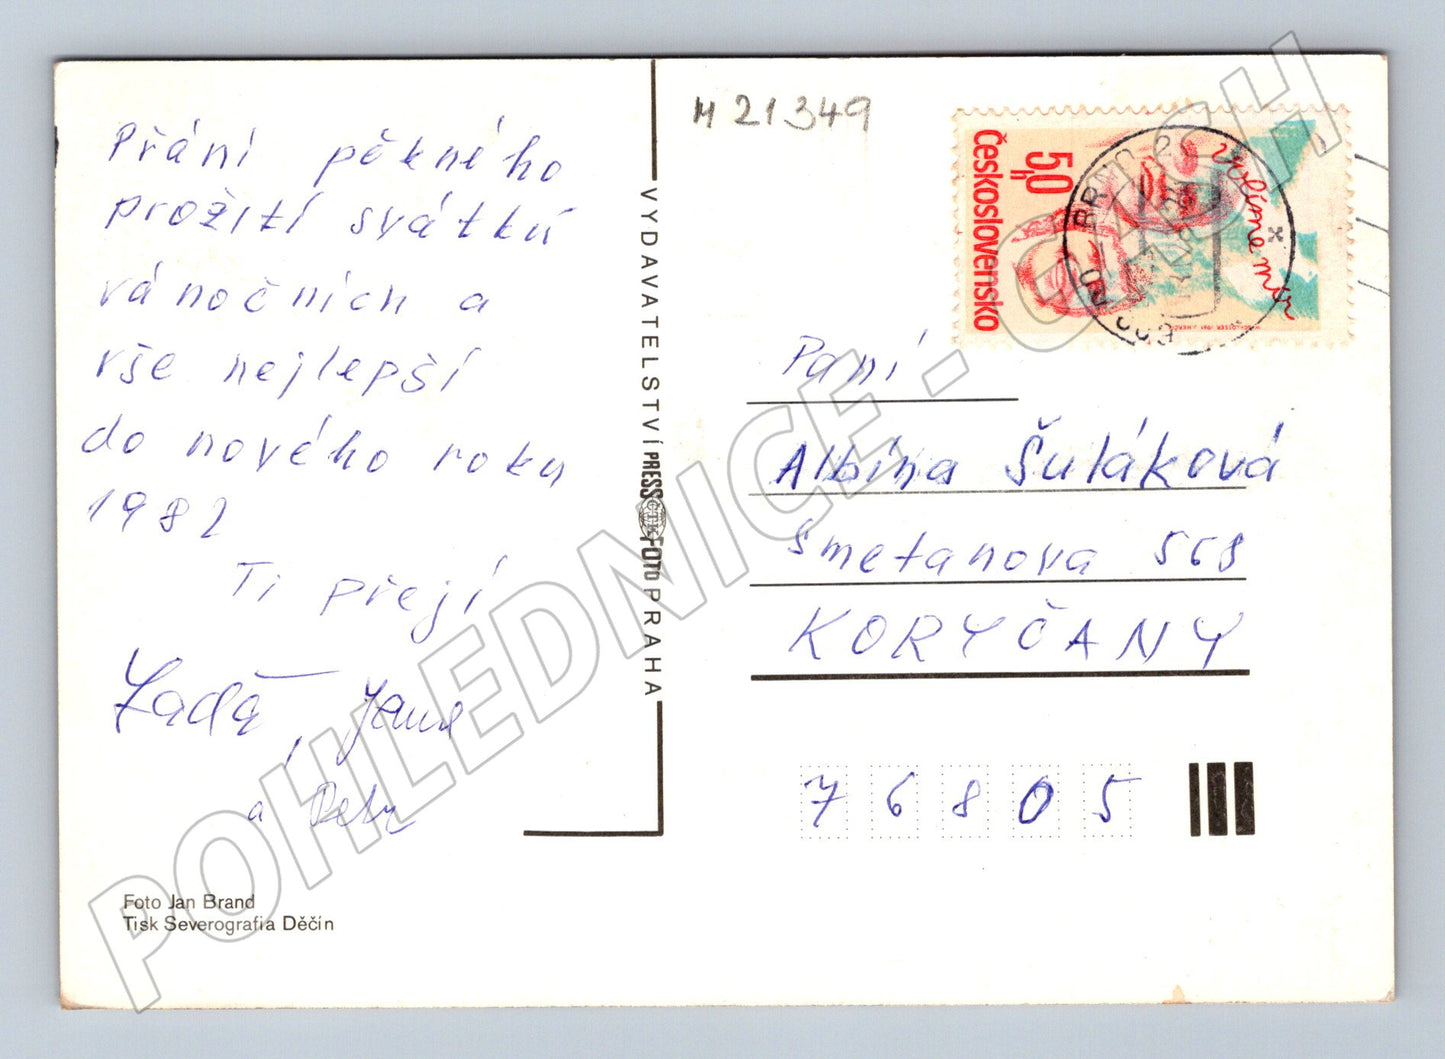 Přání pěkného
prožití svátků
vánočních a
vše nejlepší
do nového roku
1982
Ti přejí
Laďa, Jana
a
Foto Jan Brand
Tisk Severografia Děčín
VYDAVATELSTVÍ PRESSFOTO PRAHA
ČTK
M 21349
Československo
50h
volíme mír
BRNO
Paní
Albína Šuláková
Smetanova 568
KORYČANY
76805
POHLEDNICE - CASH